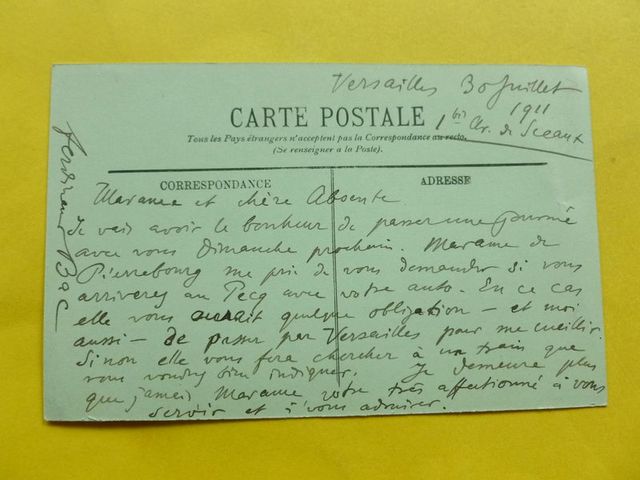 Versailles 30 Juillet
1911
1 bis Av. de Sceaux
CARTE POSTALE
Tous les Pays étrangers n'acceptent pas la Correspondance au recto.
(Se renseigner à la Poste).
CORRESPONDANCE
ADRESSE
Madame et chère Absente
Je vais avoir le bonheur de passer une journée
avec vous Dimanche prochain. Madame de
Pierrebourg me prie de vous demander si vous
arriverez au Pecq avec votre auto. En ce cas
elle vous aurait quelque obligation – et moi
aussi – de passer par Versailles pour me cueillir.
Si non elle vous fera chercher à un train que
vous voudrez bien indiquer. Je demeure plus
que jamais Madame votre très affectionné à vous
servir et à vous admirer.
Ferdinand Bac